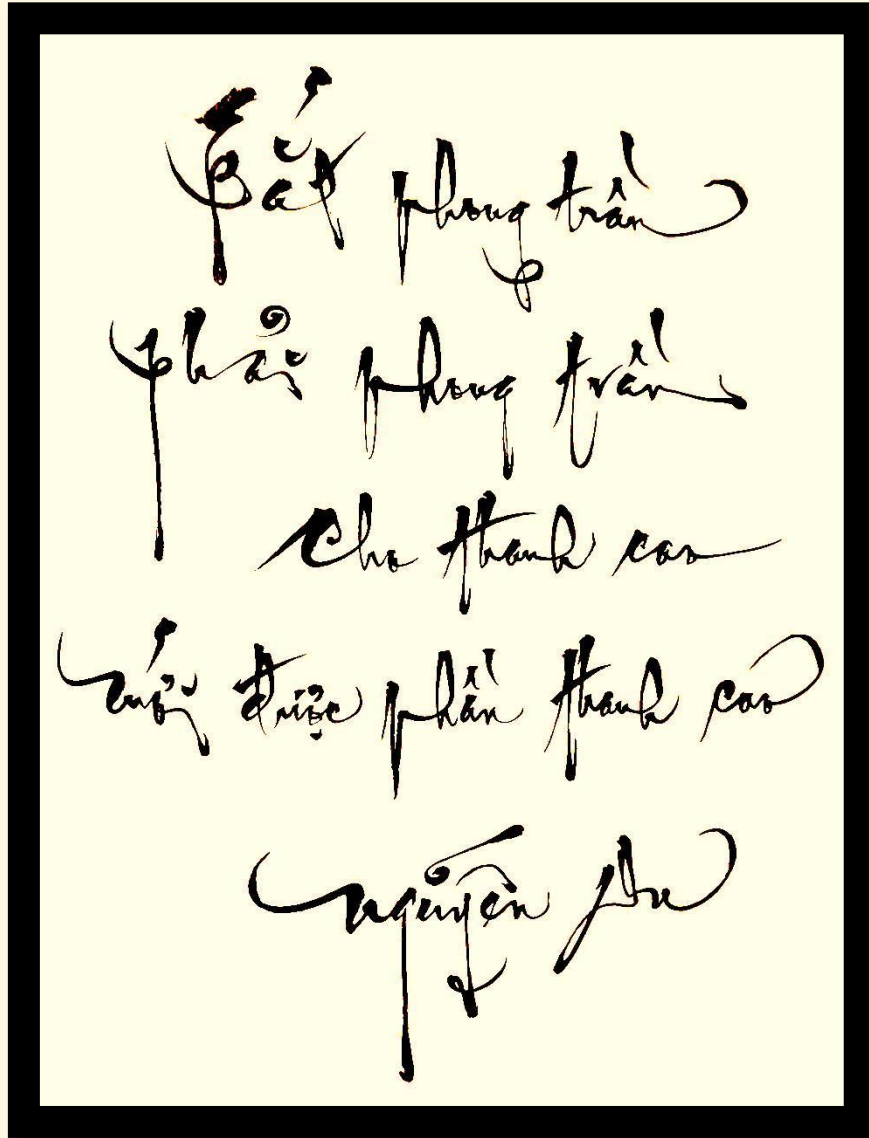 Bắt phong trần
phải phong trần
Cho thanh cao
mới được phần thanh cao
Nguyễn Du